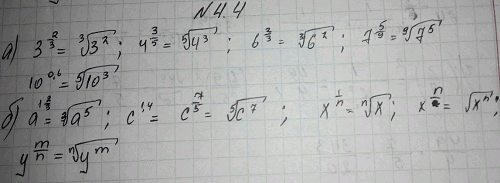 № 4.4
а) 3^(2/3) = ∛(3²); 4^(3/5) = ⁵√(4³); 6^(2/3) = ∛(6²); 7^(5/9) = ⁹√(7⁵)
10^(0,6) = ⁵√(10³)
б) a^(1 2/3) = ∛(a⁵); c^(1,4) = c^(7/5) = ⁵√(c⁷); x^(1/n) = ⁿ√x; x^(n/2) = √(xⁿ);
y^(m/n) = ⁿ√(y^m)